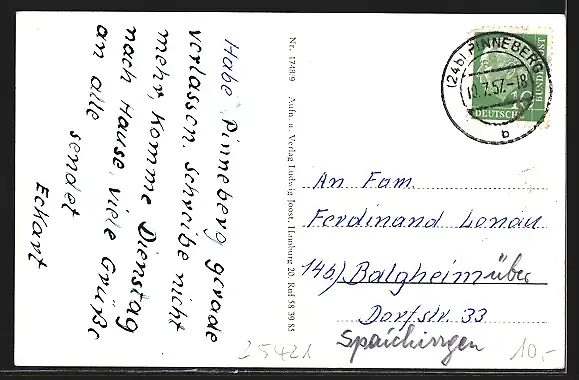 Habe Pinneberg gerade
verlassen. Schreibe nicht
mehr, komme Dienstag
nach Hause, viele Grüße
an alle sendet
Eckart
Nr. 1748/9 Aufn. u. Verlag Ludwig Joost, Hamburg 20, Ruf 58 39 85
(24b) PINNEBERG
10.7.57.-18
b
10
DEUTSCHE
BUNDESPOST
An Fam.
Ferdinand Lonau
14b) Balgheim über
Dorfstr. 33
Spaichingen
25421
10,-